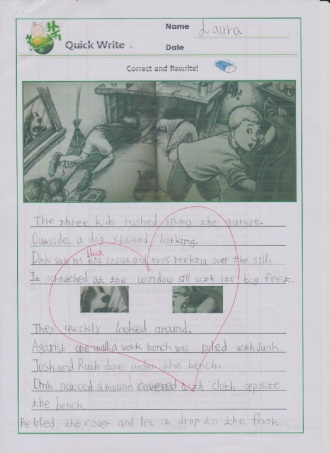 Name Laura
Quick Write
Date
Correct and Rewrite!
The three kids rushed into the garage.
Outside, a dog started barking.
black
Dink saw its big snout and eyes peeking over the sill.
It snatched at the window sill with its big feet.
They quickly looked around.
Against one wall a work bench was piled with junk.
Josh and Ruth dove under the bench.
Dink noticed a mound covered with cloth opposite
the bench.
He lifted the cover and let it drop to the floor